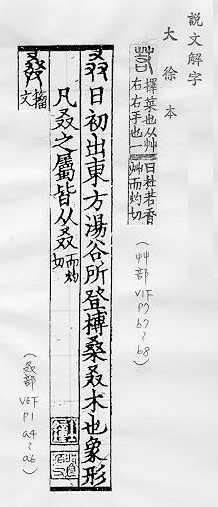 說文解字
大徐本
若 擇菜也从艸
右右手也一
曰杜若香
艸而灼切
(艸部 V1下 P7 b7~b8)
叒 日初出東方湯谷所登榑桑叒木也象形
凡叒之屬皆从叒 而灼切
籒文
(叒部 V6下 P1 a4~a6)